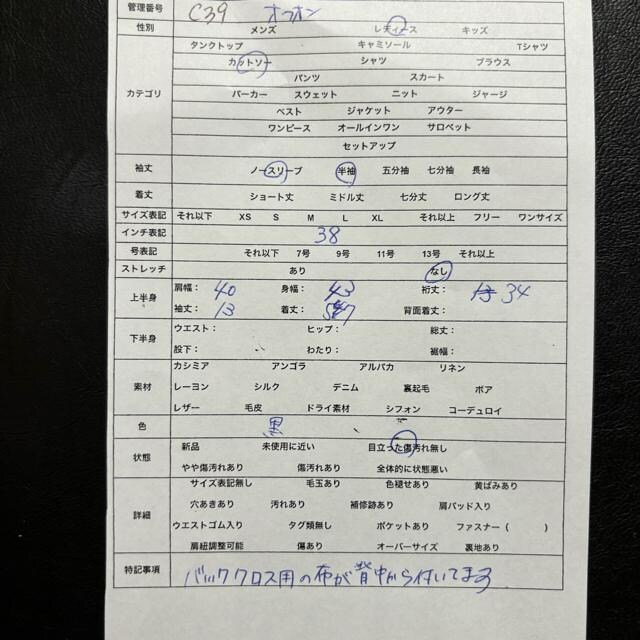 管理番号 C39 オフオン
性別 メンズ レディース キッズ
タンクトップ キャミソール Tシャツ
カットソー シャツ ブラウス
パンツ スカート
カテゴリ パーカー スウェット ニット ジャージ
ベスト ジャケット アウター
ワンピース オールインワン サロペット
セットアップ
袖丈 ノースリーブ 半袖 五分袖 七分袖 長袖
着丈 ショート丈 ミドル丈 七分丈 ロング丈
サイズ表記 それ以下 XS S M L XL それ以上 フリー ワンサイズ
インチ表記 38
号表記 それ以下 7号 9号 11号 13号 それ以上
ストレッチ あり なし
上半身 肩幅: 40 身幅: 43 裄丈: 34
袖丈: 13 着丈: 背面着丈:
下半身 ウエスト: ヒップ: 総丈:
股下: わたり: 裾幅:
カシミア アンゴラ アルパカ リネン
素材 レーヨン シルク デニム 裏起毛 ボア
レザー 毛皮 ドライ素材 シフォン コーデュロイ
色 黒
状態 新品 未使用に近い 目立った傷汚れ無し
やや傷汚れあり 傷汚れあり 全体的に状態悪い
サイズ表記無し 毛玉あり 色褪せあり 黄ばみあり
詳細 穴あきあり 汚れあり 補修跡あり 肩パッド入り
ウエストゴム入り タグ類無し ポケットあり ファスナー( )
肩紐調整可能 傷あり オーバーサイズ 裏地あり
特記事項 バッククロス用の布が背中から付いてます